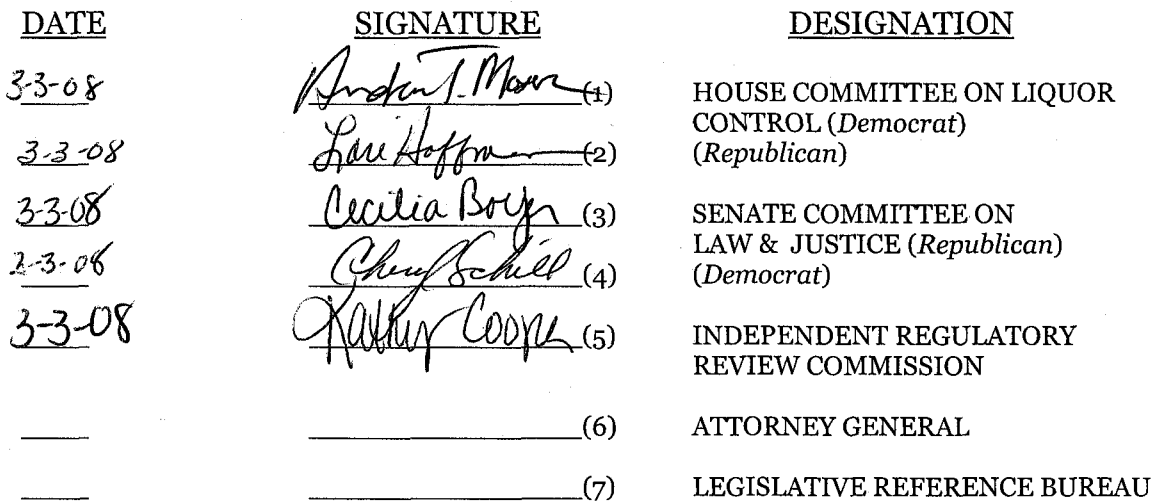 DATE SIGNATURE DESIGNATION
3-3-08 (1) HOUSE COMMITTEE ON LIQUOR
CONTROL (Democrat)
3-3-08 Lori Hoffman (2) (Republican)
3-3-08 Cecilia Boyer (3) SENATE COMMITTEE ON
LAW & JUSTICE (Republican)
2-3-08 Cheryl Schill (4) (Democrat)
3-3-08 Kathy Cooper (5) INDEPENDENT REGULATORY
REVIEW COMMISSION
(6) ATTORNEY GENERAL
(7) LEGISLATIVE REFERENCE BUREAU